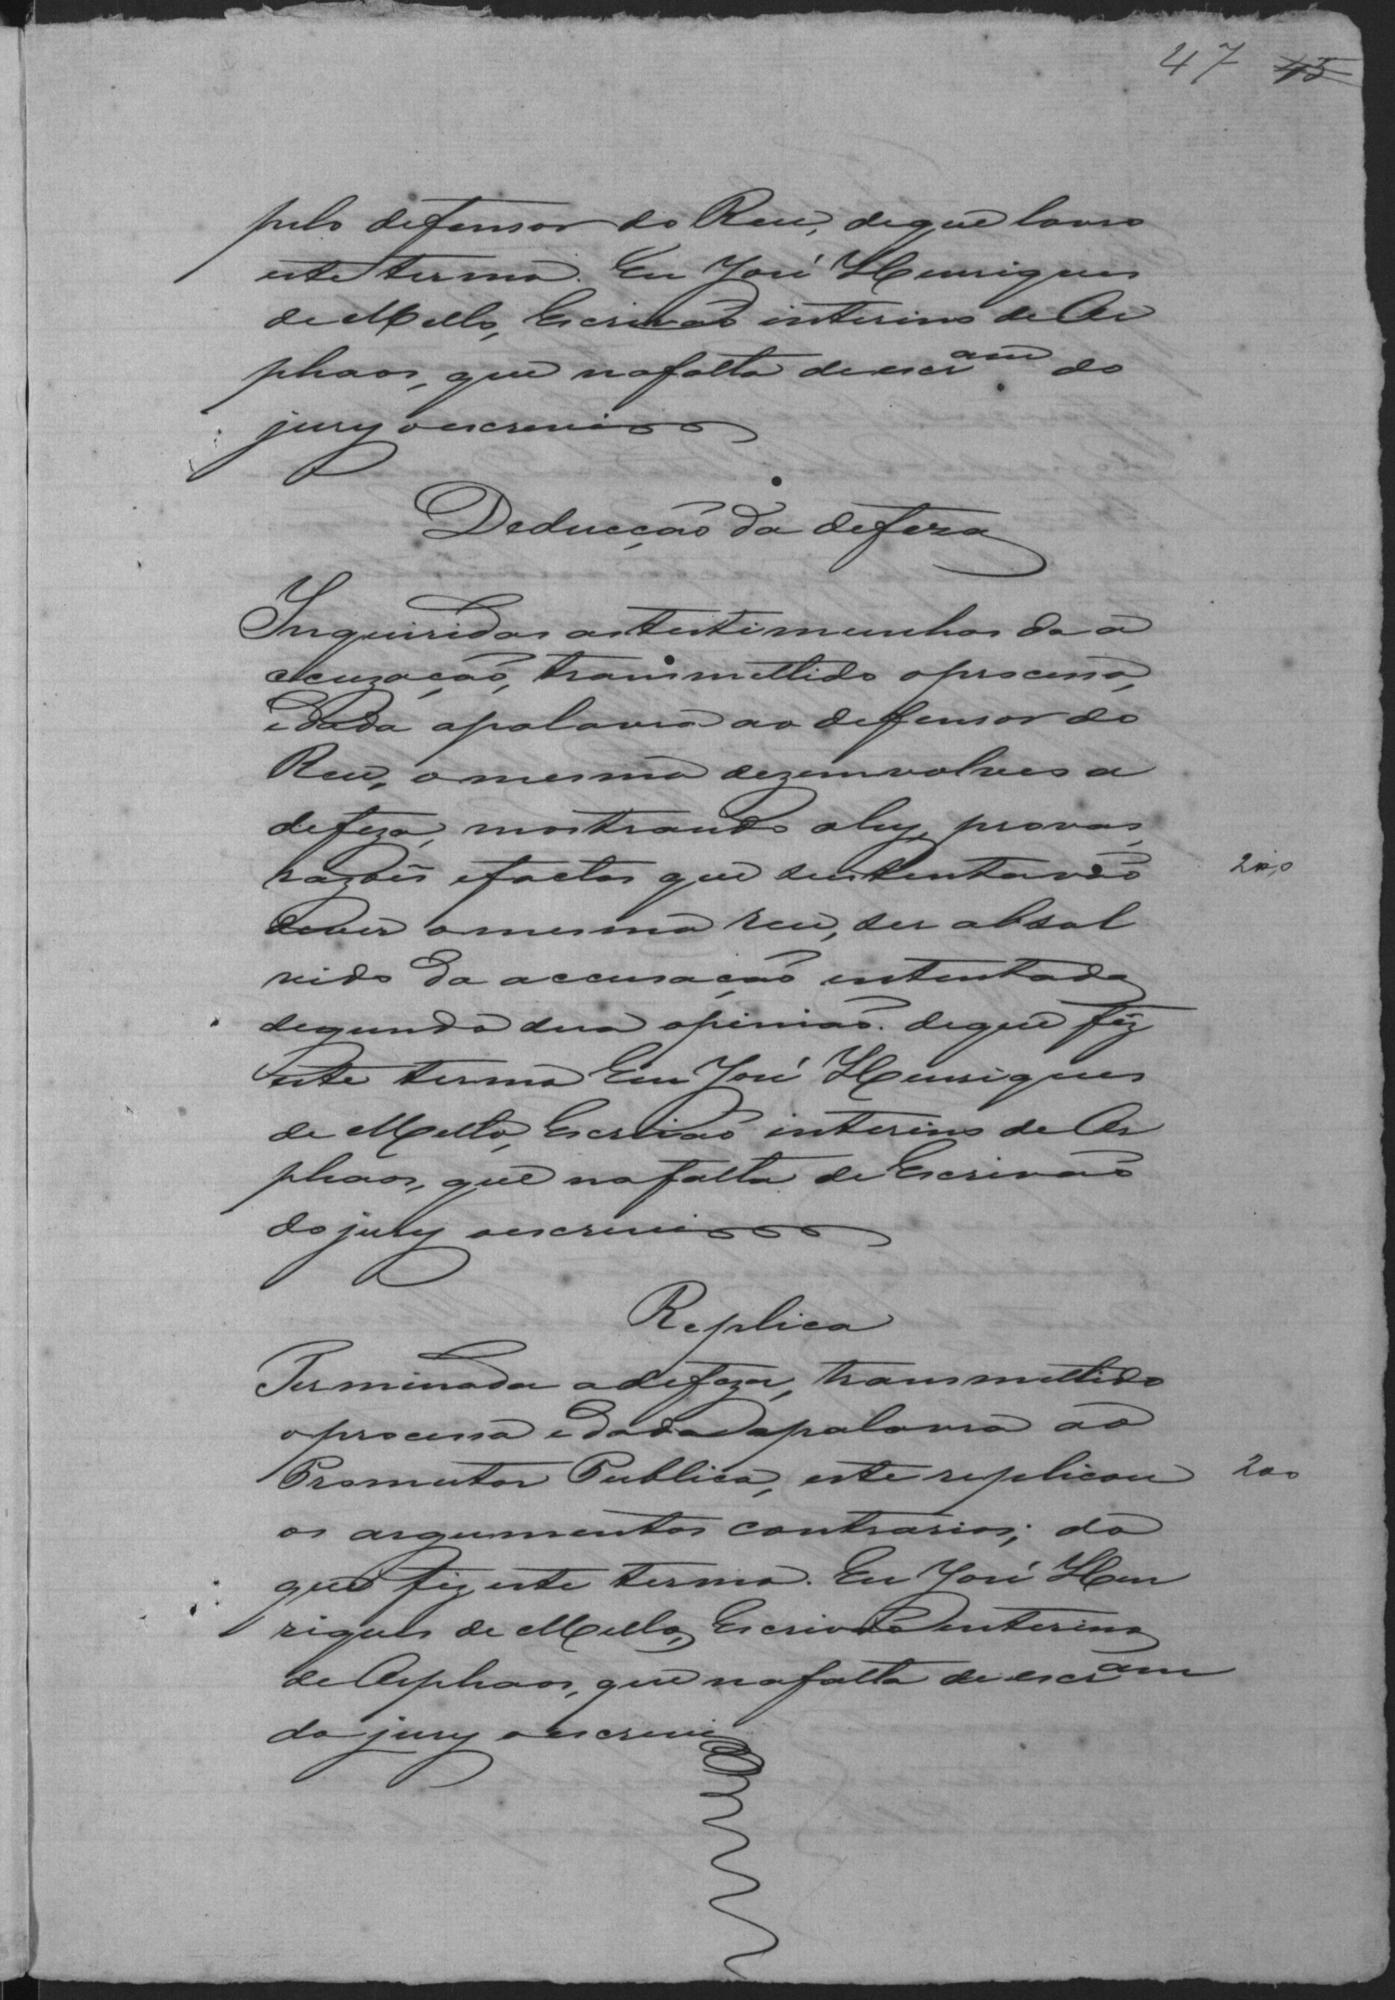 47 45
pelo defensor do Reu, de que lavro
este termo. Eu José Henriques
de Mello, Escrivão interino de Or
phaos, que na falta de escram do
jury o escrevi
Deducção da defeza
Inquiridas as testimunhas da a
ccuzação, transmettido o processo,
e dada a palavra ao defensor do
Reu, o mesmo dezemvolveo a
defeza, mostrando a ley, provas,
razões e factos que sustentavão
dever o mesmo reu, ser absol
200
vido da accusação intentada
segundo sua opinião. de que fiz
este termo Eu José Henriques
de Mello, Escrivão interino de Or
phaos, que na falta de Escrivão
do jury o escrevi
Replica
Terminada a defeza, transmettido
o processo e dada a palavra ao
Promutor Publico, este replicou
200
os argumentos contrarios; do
que fiz este termo. Eu José Hen
riques de Mello, Escrivão interino
de Orphaos, que na falta de escram
do jury o escrevi